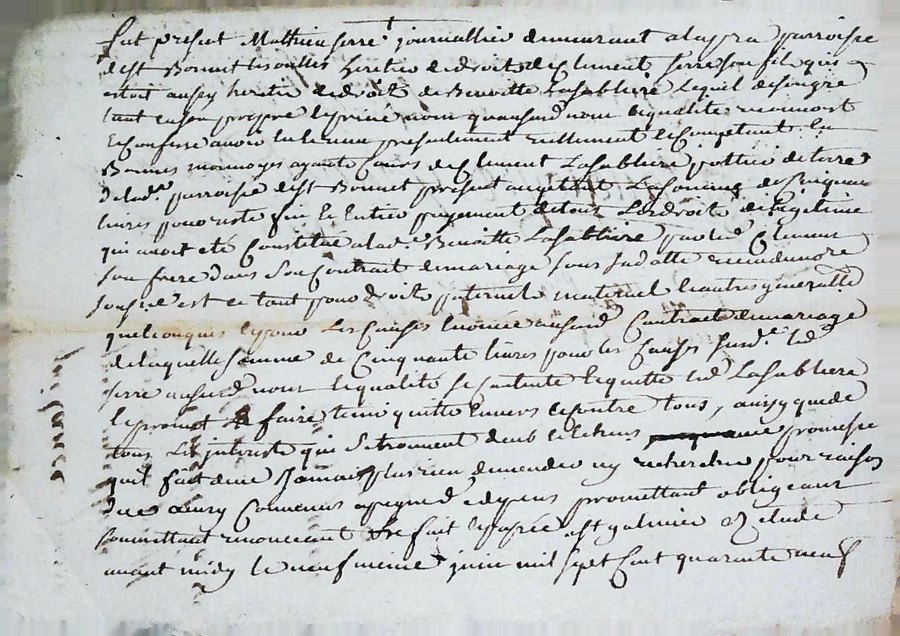 fut present Mathieu serre journallier demeurant a la pra parroisse
de st Bonnet les oulles heritier de droit de Clement serre son fils qui
estoit aussy heritier de droit de Benoitte Lasabliere Lequel de son gre
tant en son propre et prive nom quausd nom et qualite
et Confesse avoir eu et receu presentement reellement et Comptant En
Bonnes monnoyes ayants Cours de Clement Lasabliere pottier de terre
de lad. parroisse de st Bonnet present acceptant La somme de Cinquante
livres pour reste fin et Entier payement de tous Les droits de legitime
qui avoit ete Constitue a lade Benoitte Lasabliere par led Clement
son frere dans son Contrat de mariage sous sa datte
et ce tant pour droits paternels maternels et autres generallement
quelconques et pour Les Causes Enoncée aud Contract de mariage
de laquelle somme de Cinquante livres pour les Causes susd. led
serre ausd nom et qualite se Contente et quitte led Lasabliere
et promet le faire tenir quitte Envers et contre tous, aussy que de
tous Les interets qui se trouvent deub et Echeus promesse
quil fait de ne Jamais plus rien demander ny rechercher pour raison
de ce ainsy Convenu a peyne de depens promettant obligeant
soumettant renoncant fait et passé a st galmier Etude
avant midy le neufvieme juin mil sept Cent quarante neuf
quittance